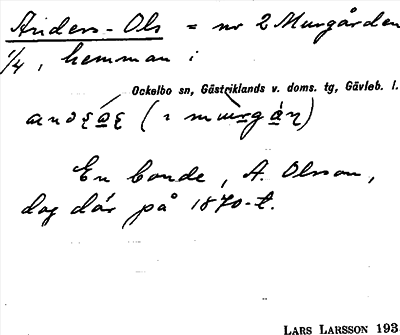 Anders-Ols = nr 2 Murgården
1/4, hemman i
Ockelbo sn, Gästriklands v. doms. tg, Gävleb. l.
En bonde, A. Olsson,
dog där på 1870-t.
LARS LARSSON 193